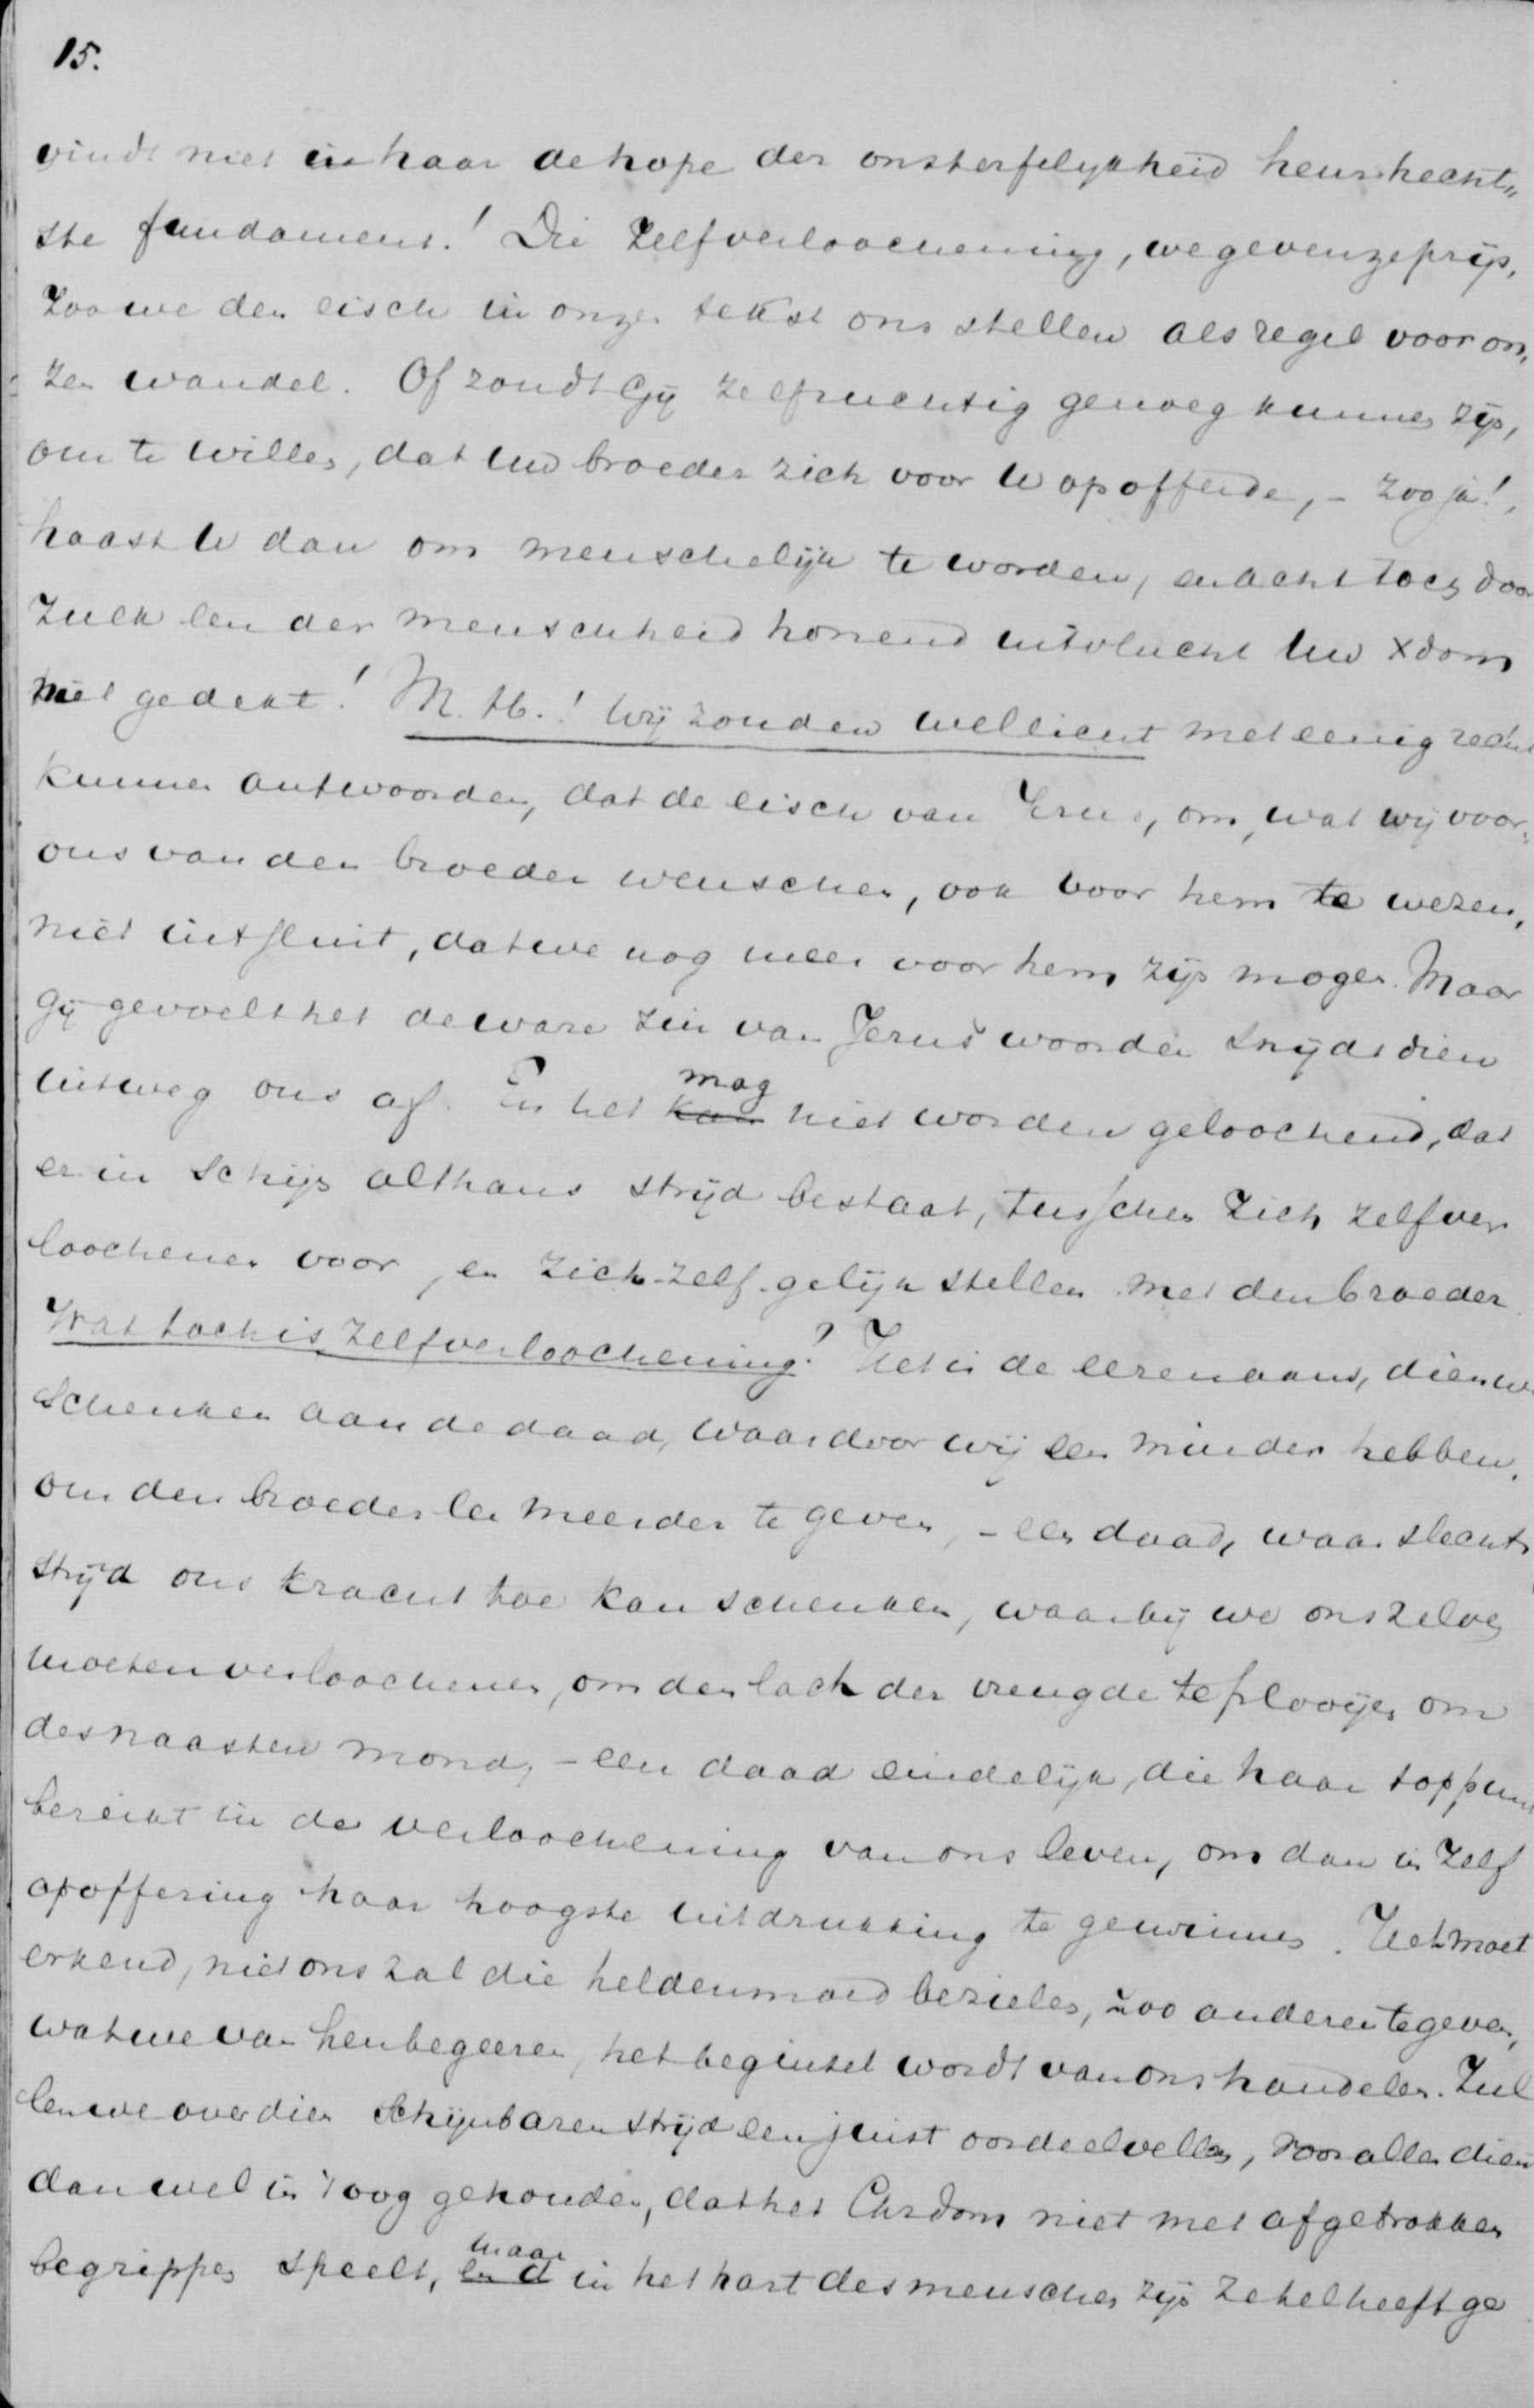 15.
vindt niet in haar de hope der onsterfelykheid heur hecht„
ste fundament! Die Zelfverloochening, we geven ze prijs,
Zoo we den eisch in onzen tekst ons stellen als regel voor on„
zen wandel. Of zoudt Gij zelfzuchtig genoeg kunnen zijn,
om te willen, dat Uw broeder zich voor U opofferde, – zoo ja!,
haast U dan om menschelijk te worden, en acht toch door
Zulk een der menschheid honend uitvlucht Uw Xdom
niet gedekt! M. H.! Wij zouden wellicht met eenig recht
kunnen antwoorden, dat de eisch van Jezus, om, wat wij voor
ons van den broeder wenschen, ook voor hem te wezen,
niet uitsluit, dat we nog meer voor hem zijn mogen. Maar
Gij gevoelt het de ware zin van Jezus' woorden snijdt dien
uitweg ons af. En het kan mag niet worden geloochend, dat
er in schijn althans strijd bestaat, tusschen Zich zelf ver
loochenen voor, en zich-zelf-gelijk stellen met den broeder.
Wat toch is Zelfverloochening? Het is de eerenaam, dien we
Schenken aan de daad, waardoor wij een minder hebben,
om den broeder een meerder te geven, – een daad, waar slechts
strijd ons kracht toe kan schenken, waarbij we ons zelven
moeten verloochenen, om den lach der vreugde te plooijen om
des naasten mond, – een daad eindelijk, die haar toppunt
bereikt in de verloochening van ons leven, om dan in Zelf
opoffering haar hoogste uitdrukking te gewinnen. Het moet
erkend, niet ons zal die heldenmoed bezielen, zoo anderen te geven,
wat we van hen begeeren, het beginsel wordt van ons handelen. Zul
len we over dien Schijnbaren strijd een juist oordeel vellen, vooral dien
dan wel in 't oog gehouden, dat het Chrdom niet met afgetrokken
begrippen speelt, en d maar in het hart des menschen zijn zetel heeft ge